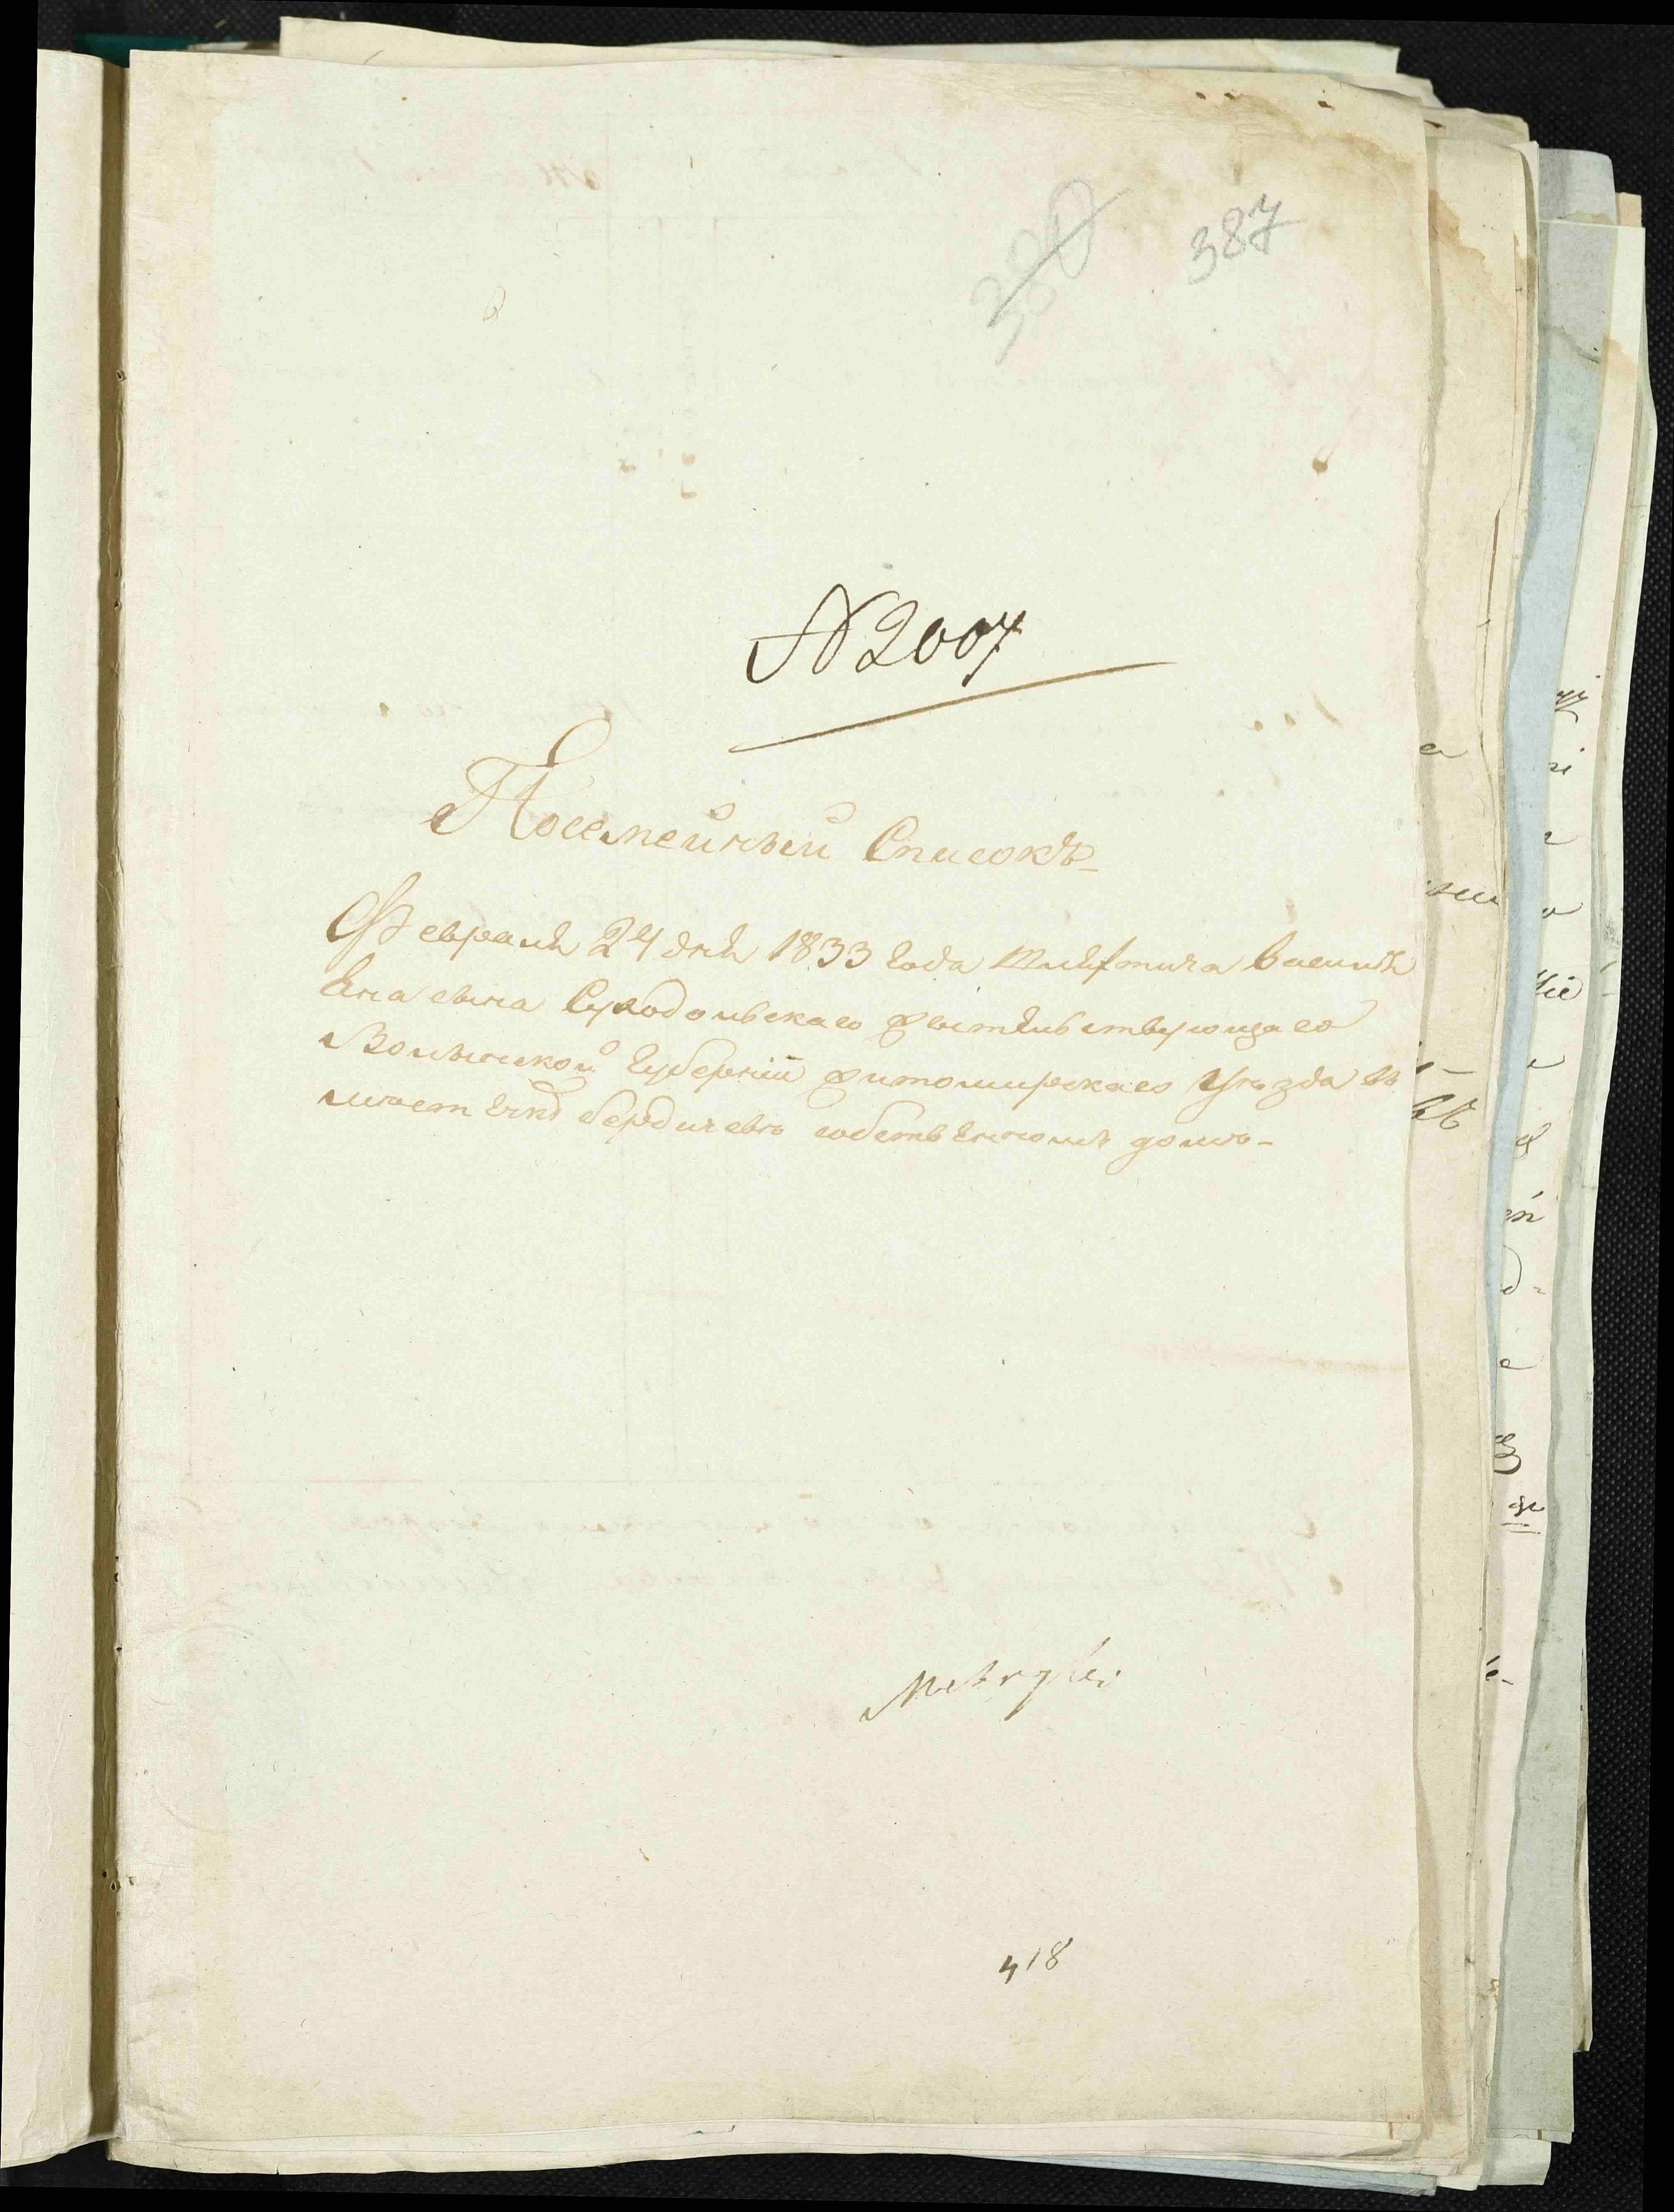 380
387
N 2007
Посемейный Списокъ
Февраля 24 дня 1833 года Шляхтича Василія
Яна сына Суходольскаго жытельствующаго
Волынской Губерніи житомирскаго уѣзда въ
мѣстечкѣ бердичевѣ собственномъ домѣ
Metryki
418